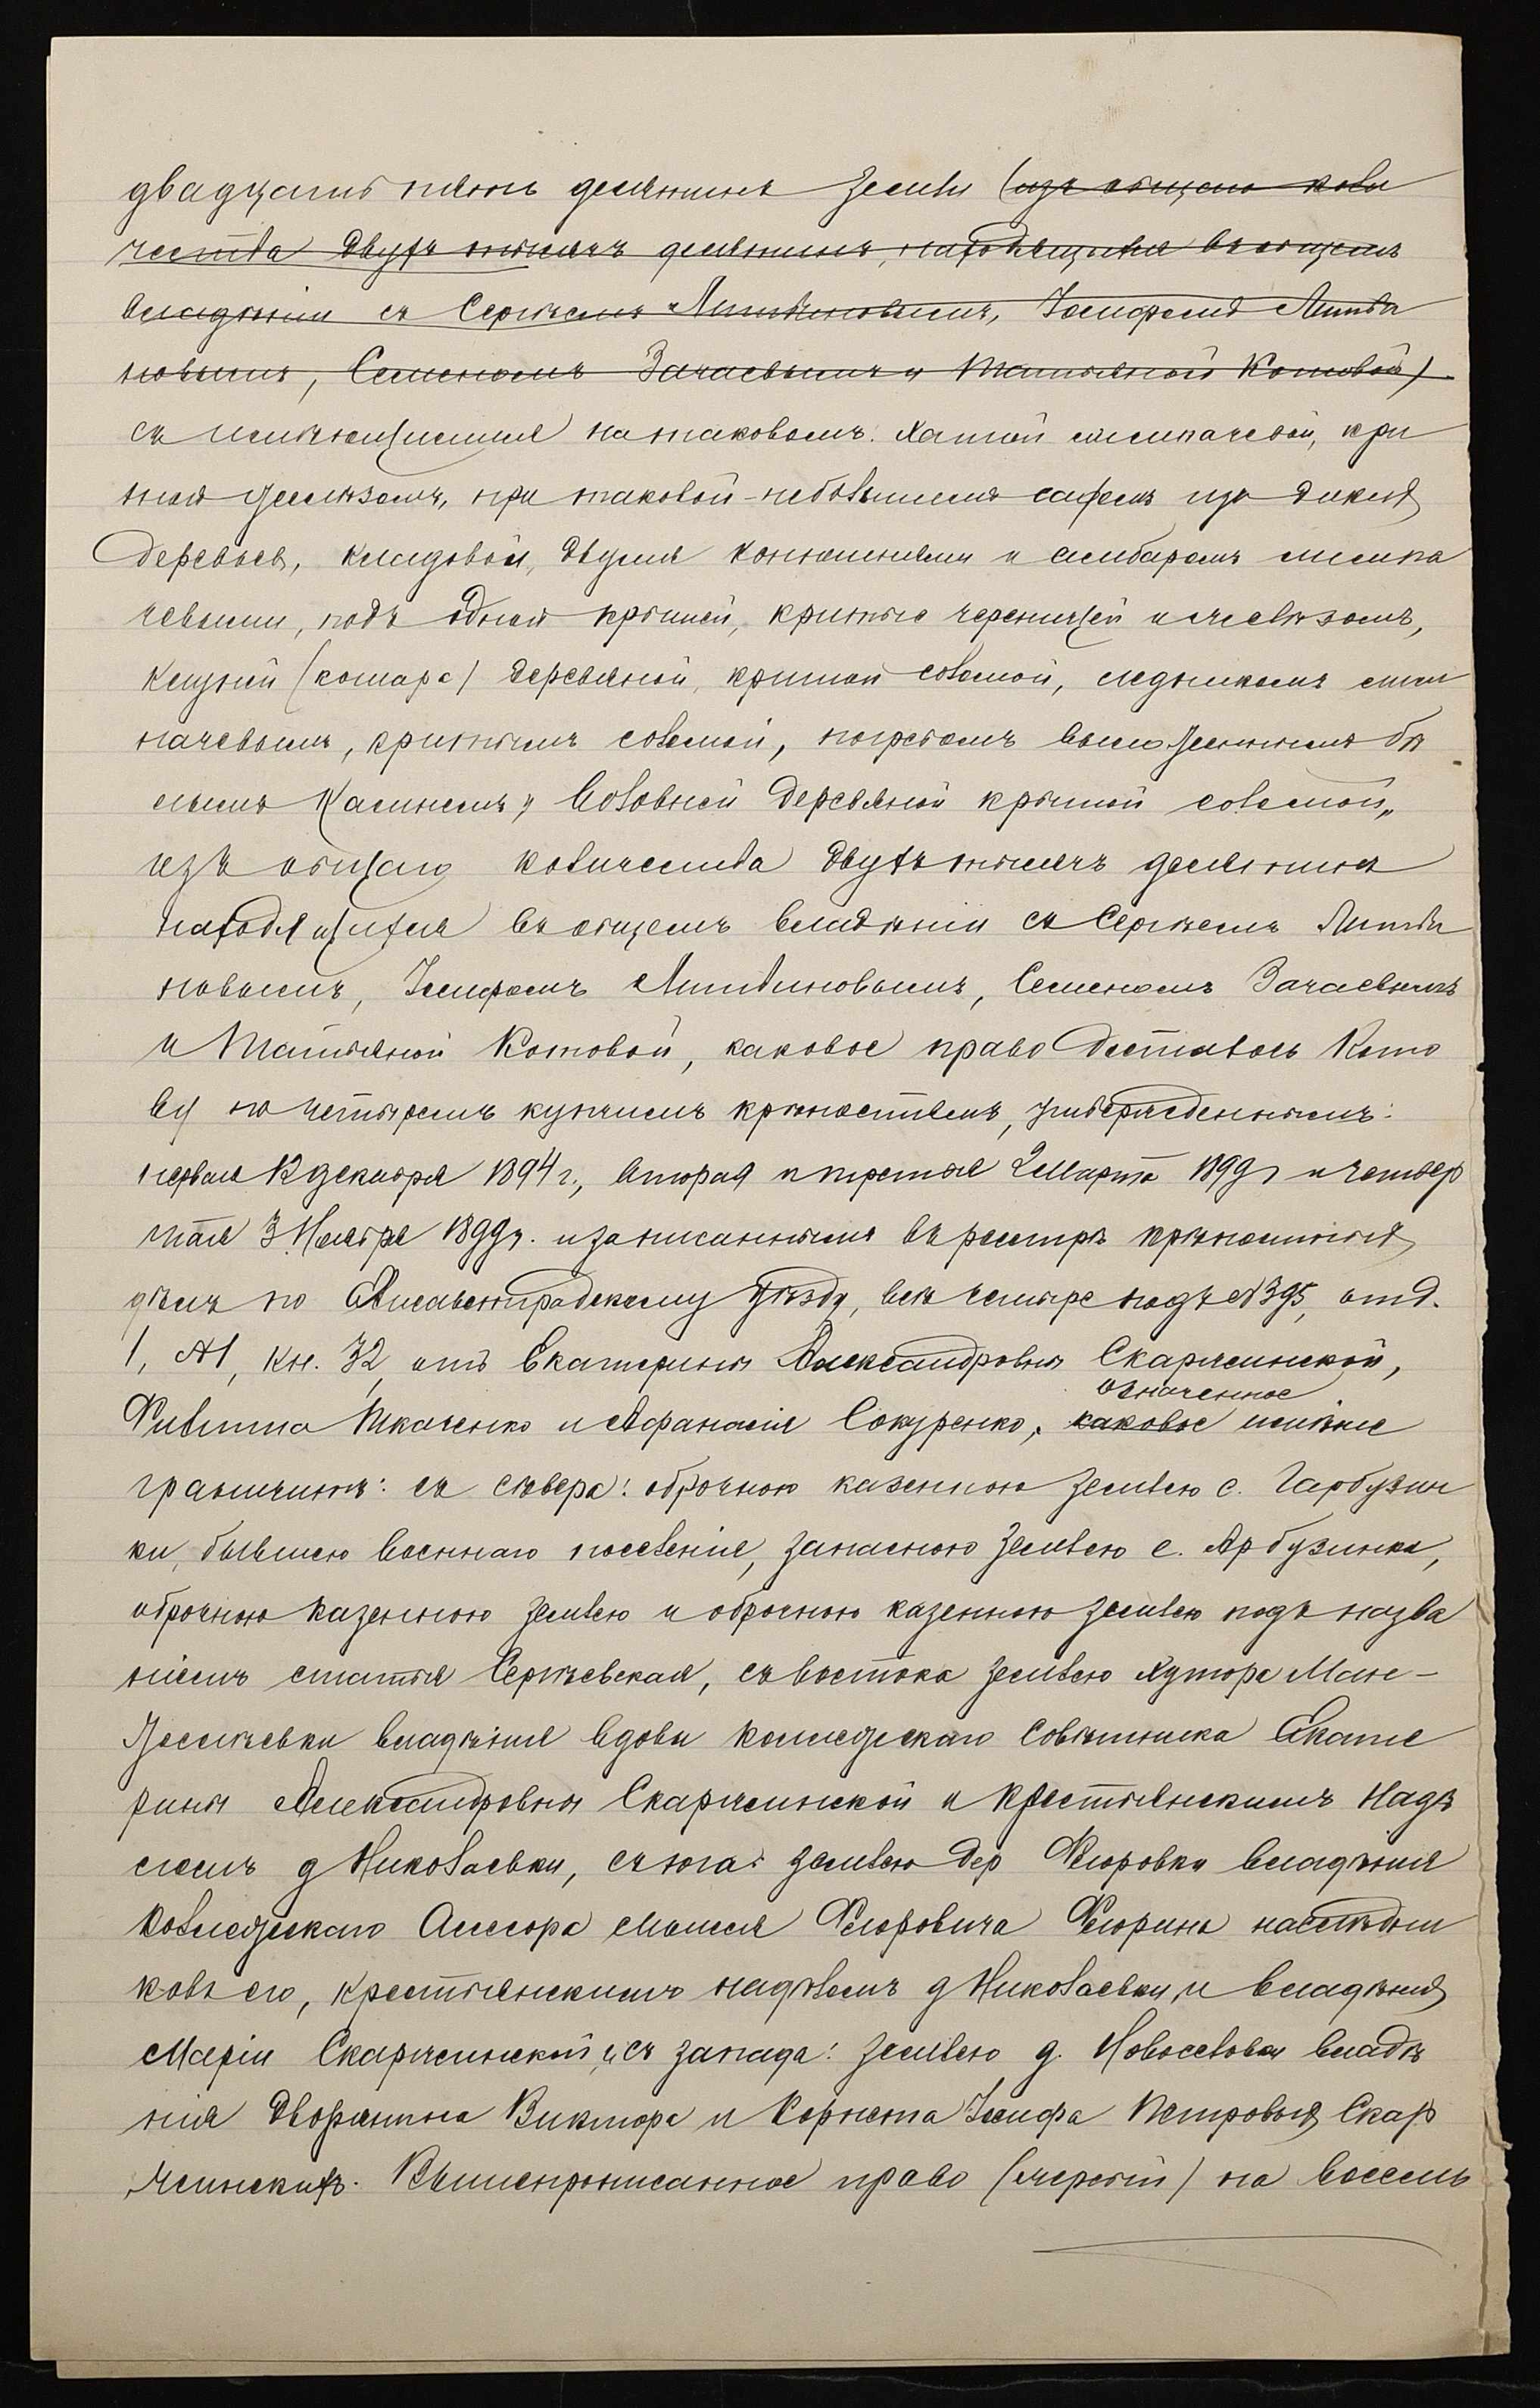 двадцать пять десятинъ земли (изъ общаго коли
чества двухъ тысячъ десятинъ, находящихся въ общемъ
владѣніи съ Сергѣемъ Литвиновымъ, Іосифомъ Литви
новымъ, Семеномъ Зачаевымъ и Татьяной Котовой)
съ имѣющимися на таковомъ: хатой лимпачевой, кры
той желѣзомъ, при таковой небольшимъ садомъ изъ дикихъ
деревьевъ, кладовой, двумя конюшнями и амбаромъ лимпа
чевыми, подъ одной крышей, крытые черепицей и желѣзомъ,
клуней (кошара) деревяной, крытой соломой, ледникомъ лим
пачевымъ, крытымъ соломой, погребомъ выложеннымъ бѣ
лымъ камнемъ, и воловней деревяной крытой соломой,,
изъ общаго количества двухъ тысячъ десятинъ
находящихся въ общемъ владѣніи съ Сергѣемъ Литви
новымъ, Іосифомъ Литвиновымъ, Семеномъ Зачаевымъ
и Татьяной Котовой, каковое право досталось Кото
ву по четыремъ купчимъ крѣпостямъ, утвержденнымъ:
первая 12 декабря 1894 г., вторая и третья 2 Марта 1899 г и четвер
тая 3 Ноября 1899 г. и записаннымъ въ реестръ крѣпостныхъ
дѣлъ по Елисаветградскому уѣзду, всѣ четыре подъ № 395, отд.
1, № 1, кн. 32, отъ Екатерины Александровны Скаржинской,
означенное
Филиппа Ткаченко и Афанасія Сокуренко, каковое имѣніе
граничитъ: съ сѣвера: оброчною казенною землею с. Гарбузин
ки, бывшею военнаго поселенія, запасною землею с. Арбузинка,
оброчною казенною землею и оброчною казенною землею подъ назва
ніемъ статья Сергѣевская, съ востока землею хутора Мало-
владѣнія вдовы коллежскаго совѣтника Екате
рины Александровны Скаржинской и крестьянскимъ надѣ
ломъ д Николаевки, съ юга: землею дер Флоровки владѣнія
коллежскаго Асессора Моисея Флоровича Флорина наслѣдни
ковъ его, крестьянскимъ надѣломъ д Николаевки, и владѣнія
Маріи Скаржинской, и съ запада: землею д. Новоселовки владѣ
нія дворянина Виктора и Корнета Іосифа Петровыхъ Скар
жинскихъ. Вышепрописанное право (жеребій) на восемь